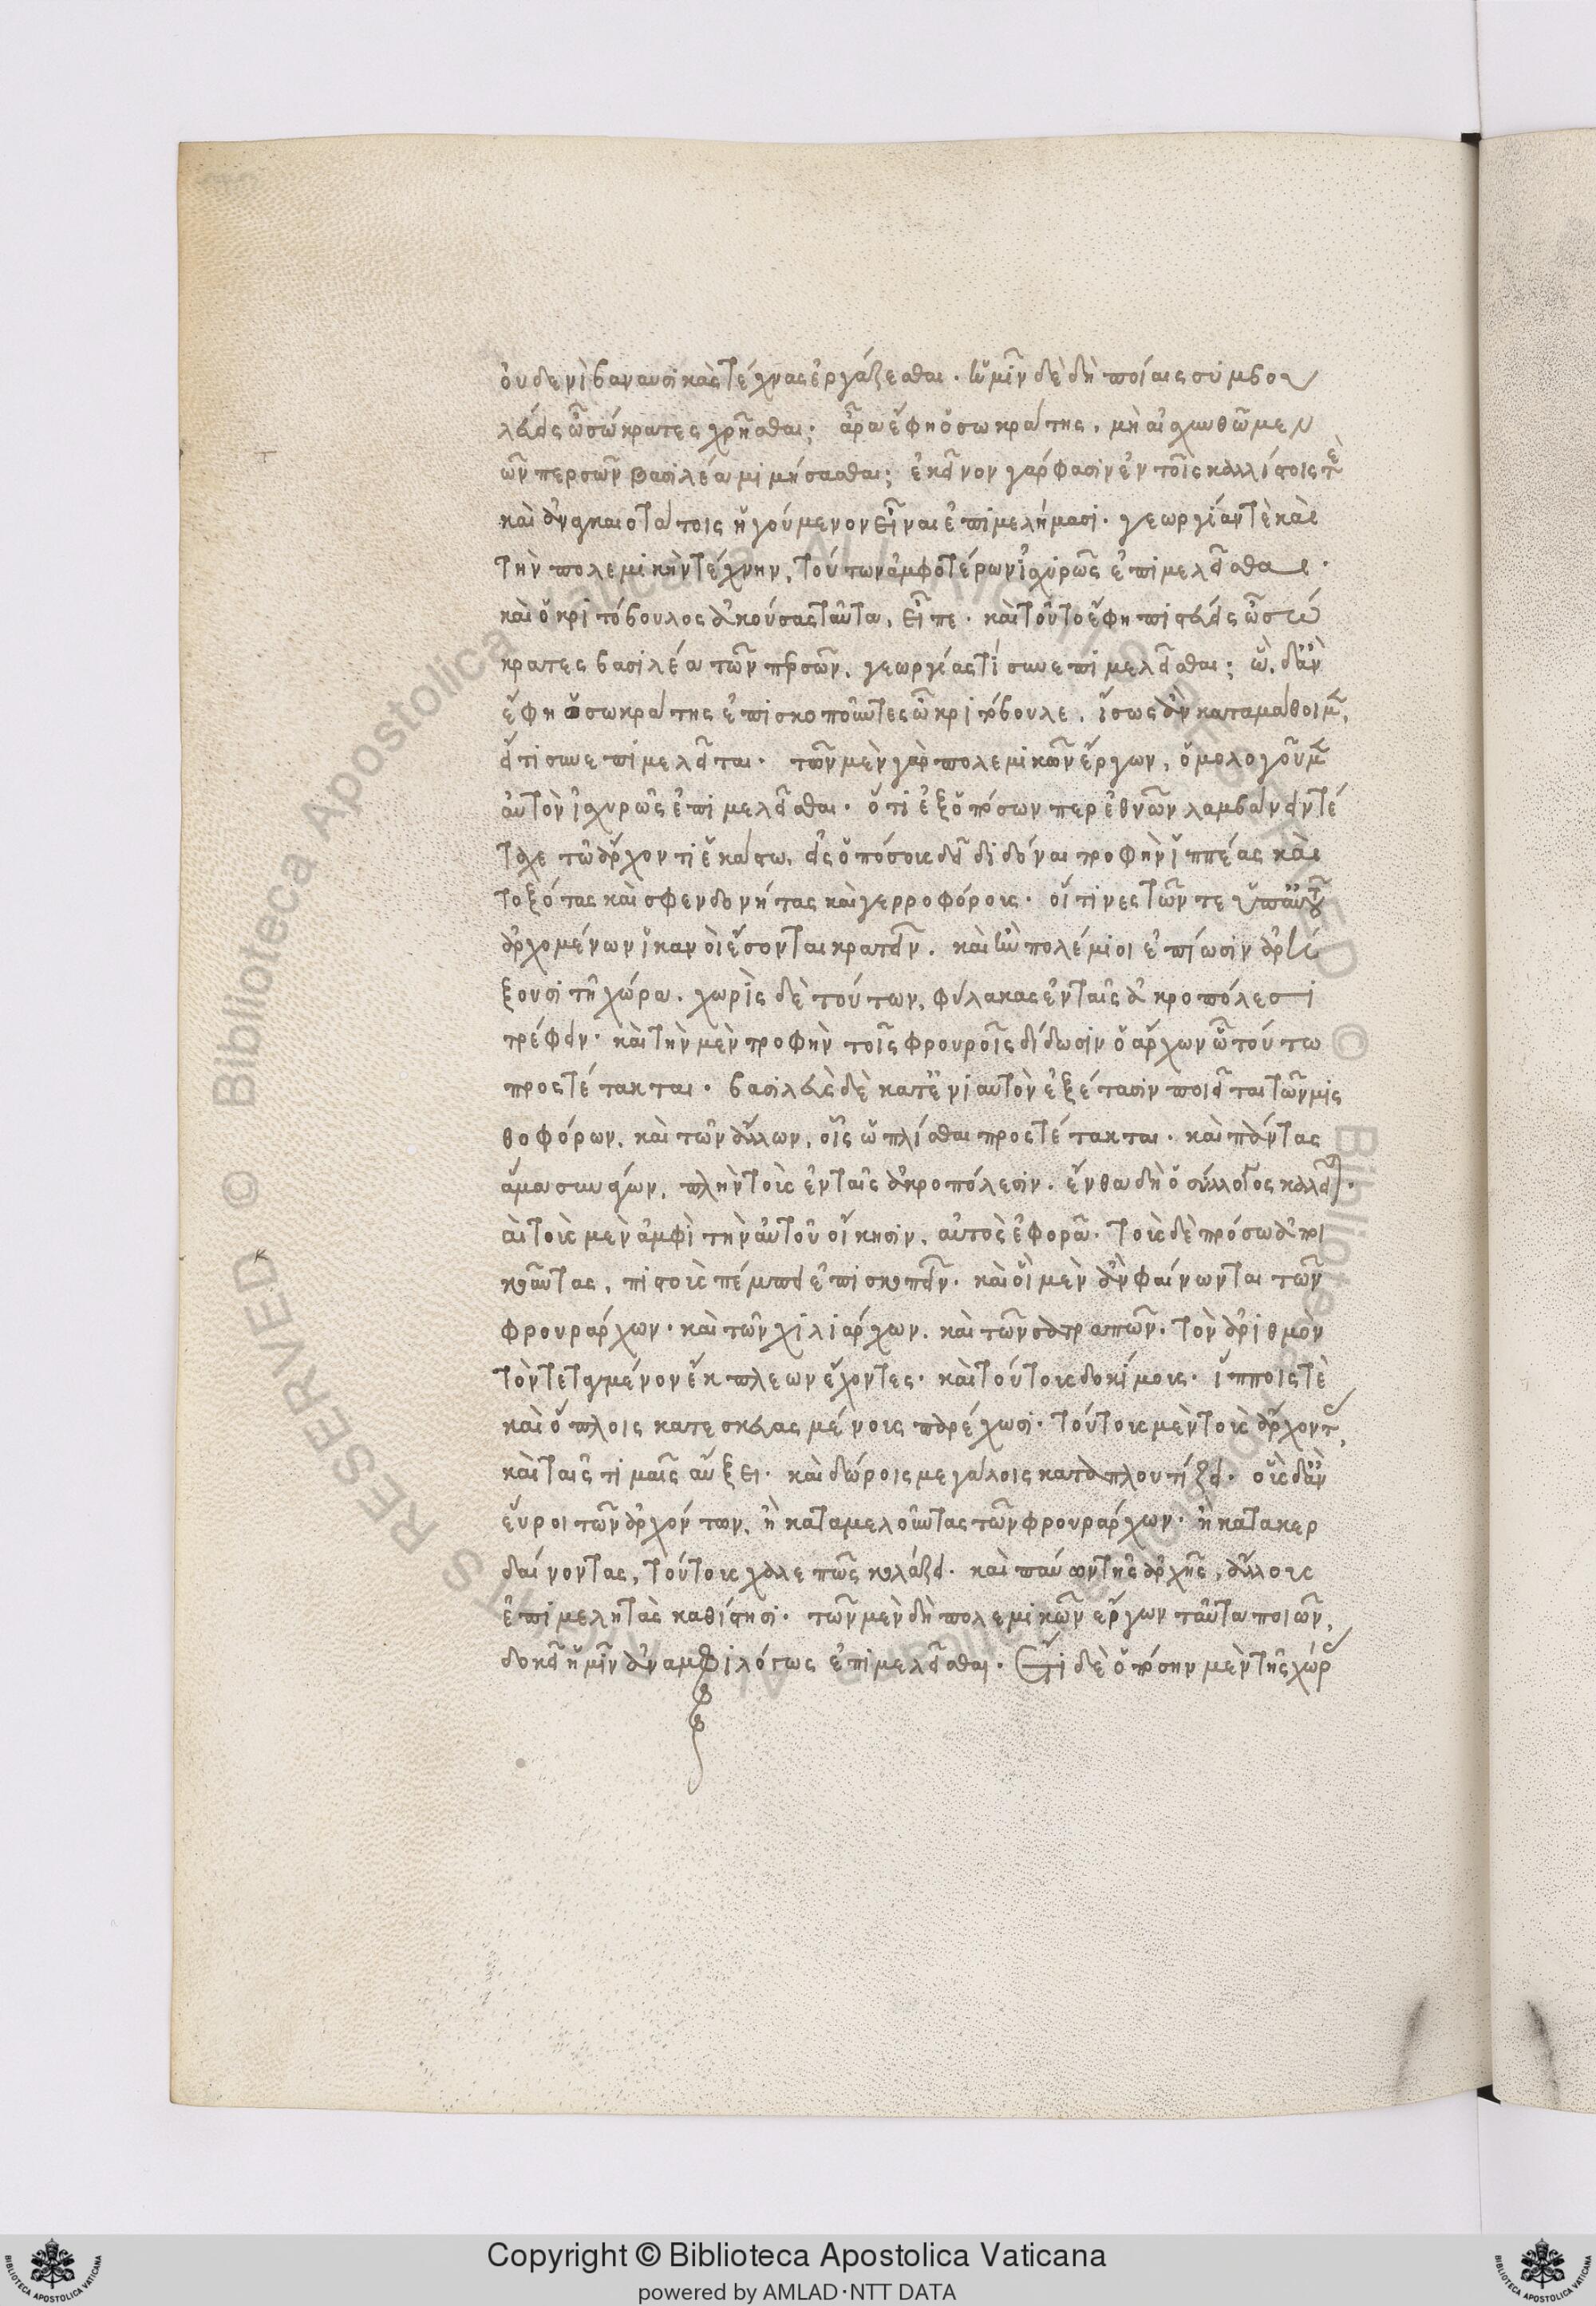 οὐδενὶ βαναυσικὰς τέχνας ἐργάζεσθαι. ἡμῖν δὲ δὴ ποίαις συμβου
λεύεις ὦ σώκρατες χρῆσθαι; ἆρα ἔφη ὁ σωκράτης, μὴ αἰσχυνθῶμεν
ὧν περσῶν βασιλέα μιμήσασθαι; ἐκεῖνον γάρ φασιν ἐν τοῖς καλλίστοις τὲ
καὶ ἀναγκαιοτάτοις ἡγούμενον εἶναι ἐπιμελήμασι. γεωργίαν τὲ καὶ
τὴν πολεμικὴν τέχνην, τούτων ἀμφοτέρων ἰσχυρῶς ἐπιμελεῖσθαι.
καὶ ὁ κριτόβουλος ἀκούσας ταῦτα, εἶπε. καὶ τοῦτο ἔφη πιστεύεις ὦ σώ
κρατες βασιλέα τῶν περσῶν, γεωργίας τί συνεπιμελεῖσθαι; ὧδ' ἂν
ἔφη ὁ σωκράτης ἐπισκοποῦντες ὦ κριτόβουλε, ἴσως ἂν καταμάθοιμεν,
εἴ τι συνεπιμελεῖται. τῶν μὲν γὰρ πολεμικῶν ἔργων, ὁμολογοῦμεν
αὐτὸν ἰσχυρῶς ἐπιμελεῖσθαι. ὅτι ἐξ ὁπόσων περ ἐθνῶν λαμβάνειν τέ
ταχε τῷ ἄρχοντι ἑκάστω, εἰς ὁπόσους δεῖ διδόναι τροφὴν ἱππέας καὶ
τοξότας καὶ σφενδονήτας καὶ γερροφόρους. οἵτινες τῶν τε ὑπ' αὐτοῦ
ἀρχομένων ἱκανοὶ ἔσονται κρατεῖν. καὶ ἢν πολέμιοι ἐπίωσιν ἀρή
ξουσι τῇ χώρα. χωρὶς δὲ τούτων, φύλακας ἐν ταῖς ἀκροπόλεσι
τρέφειν. καὶ τὴν μὲν τροφὴν τοῖς φρουροῖς δίδωσιν ὁ ἄρχων ᾧ τούτω
προςτέτακται. βασιλεὺς δὲ κατ' ἐνιαυτὸν ἐξέτασιν ποιεῖται τῶν μισ
θοφόρων, καὶ τῶν ἄλλων, οἷς ὡπλίσθαι προςτέτακται. καὶ πάντας
ἅμα συνάγων, πλὴν τοὺς ἐν ταῖς ἀκροπόλεσιν. ἔνθα δὴ ὁ σύλλογος καλεῖται.
αὶ τοὺς μὲν ἀμφὶ τὴν αὑτοῦ οἴκησιν, αὐτὸς ἐφορᾶ. τοὺς δὲ πρόσω ἀποι
κοῦντας, πιστοὺς πέμπει ἐπισκοπεῖν. καὶ οἱ μὲν ἂν φαίνωνται τῶν
φρουράρχων. καὶ τῶν χιλιάρχων. καὶ τῶν σατραπῶν. τὸν ἀριθμον
τὸν τεταγμένον ἔκπλεων ἔχοντες. καὶ τούτους δοκίμοις. ἵπποις τὲ
καὶ ὅπλοις κατεσκευασμένους παρέχωσι. τούτους μὲν τοὺς ἄρχοντας,
καὶ ταῖς τιμαῖς αὔξει. καὶ δώροις μεγάλοις καταπλουτίζει. οὓς δ' ἂν
εὕροι τῶν ἀρχόντων, ἢ καταμελοῦντας τῶν φρουράρχων. ἢ κατακερ
δαίνοντας, τούτους χαλεπῶς κολάζει. καὶ παύων τῆς ἀρχῆς, ἄλλους
ἐπιμελητὰς καθίστησι. τῶν μὲν δὴ πολεμικῶν ἔργων ταῦτα ποιῶν,
δοκεῖ ἡμῖν ἀναμφιλόγως ἐπιμελεῖσθαι. Ἔτι δὲ ὁπόσην μὲν τῆς χώρας
Copyright © Biblioteca Apostolica Vaticana
powered by AMLAD·NTT DATA